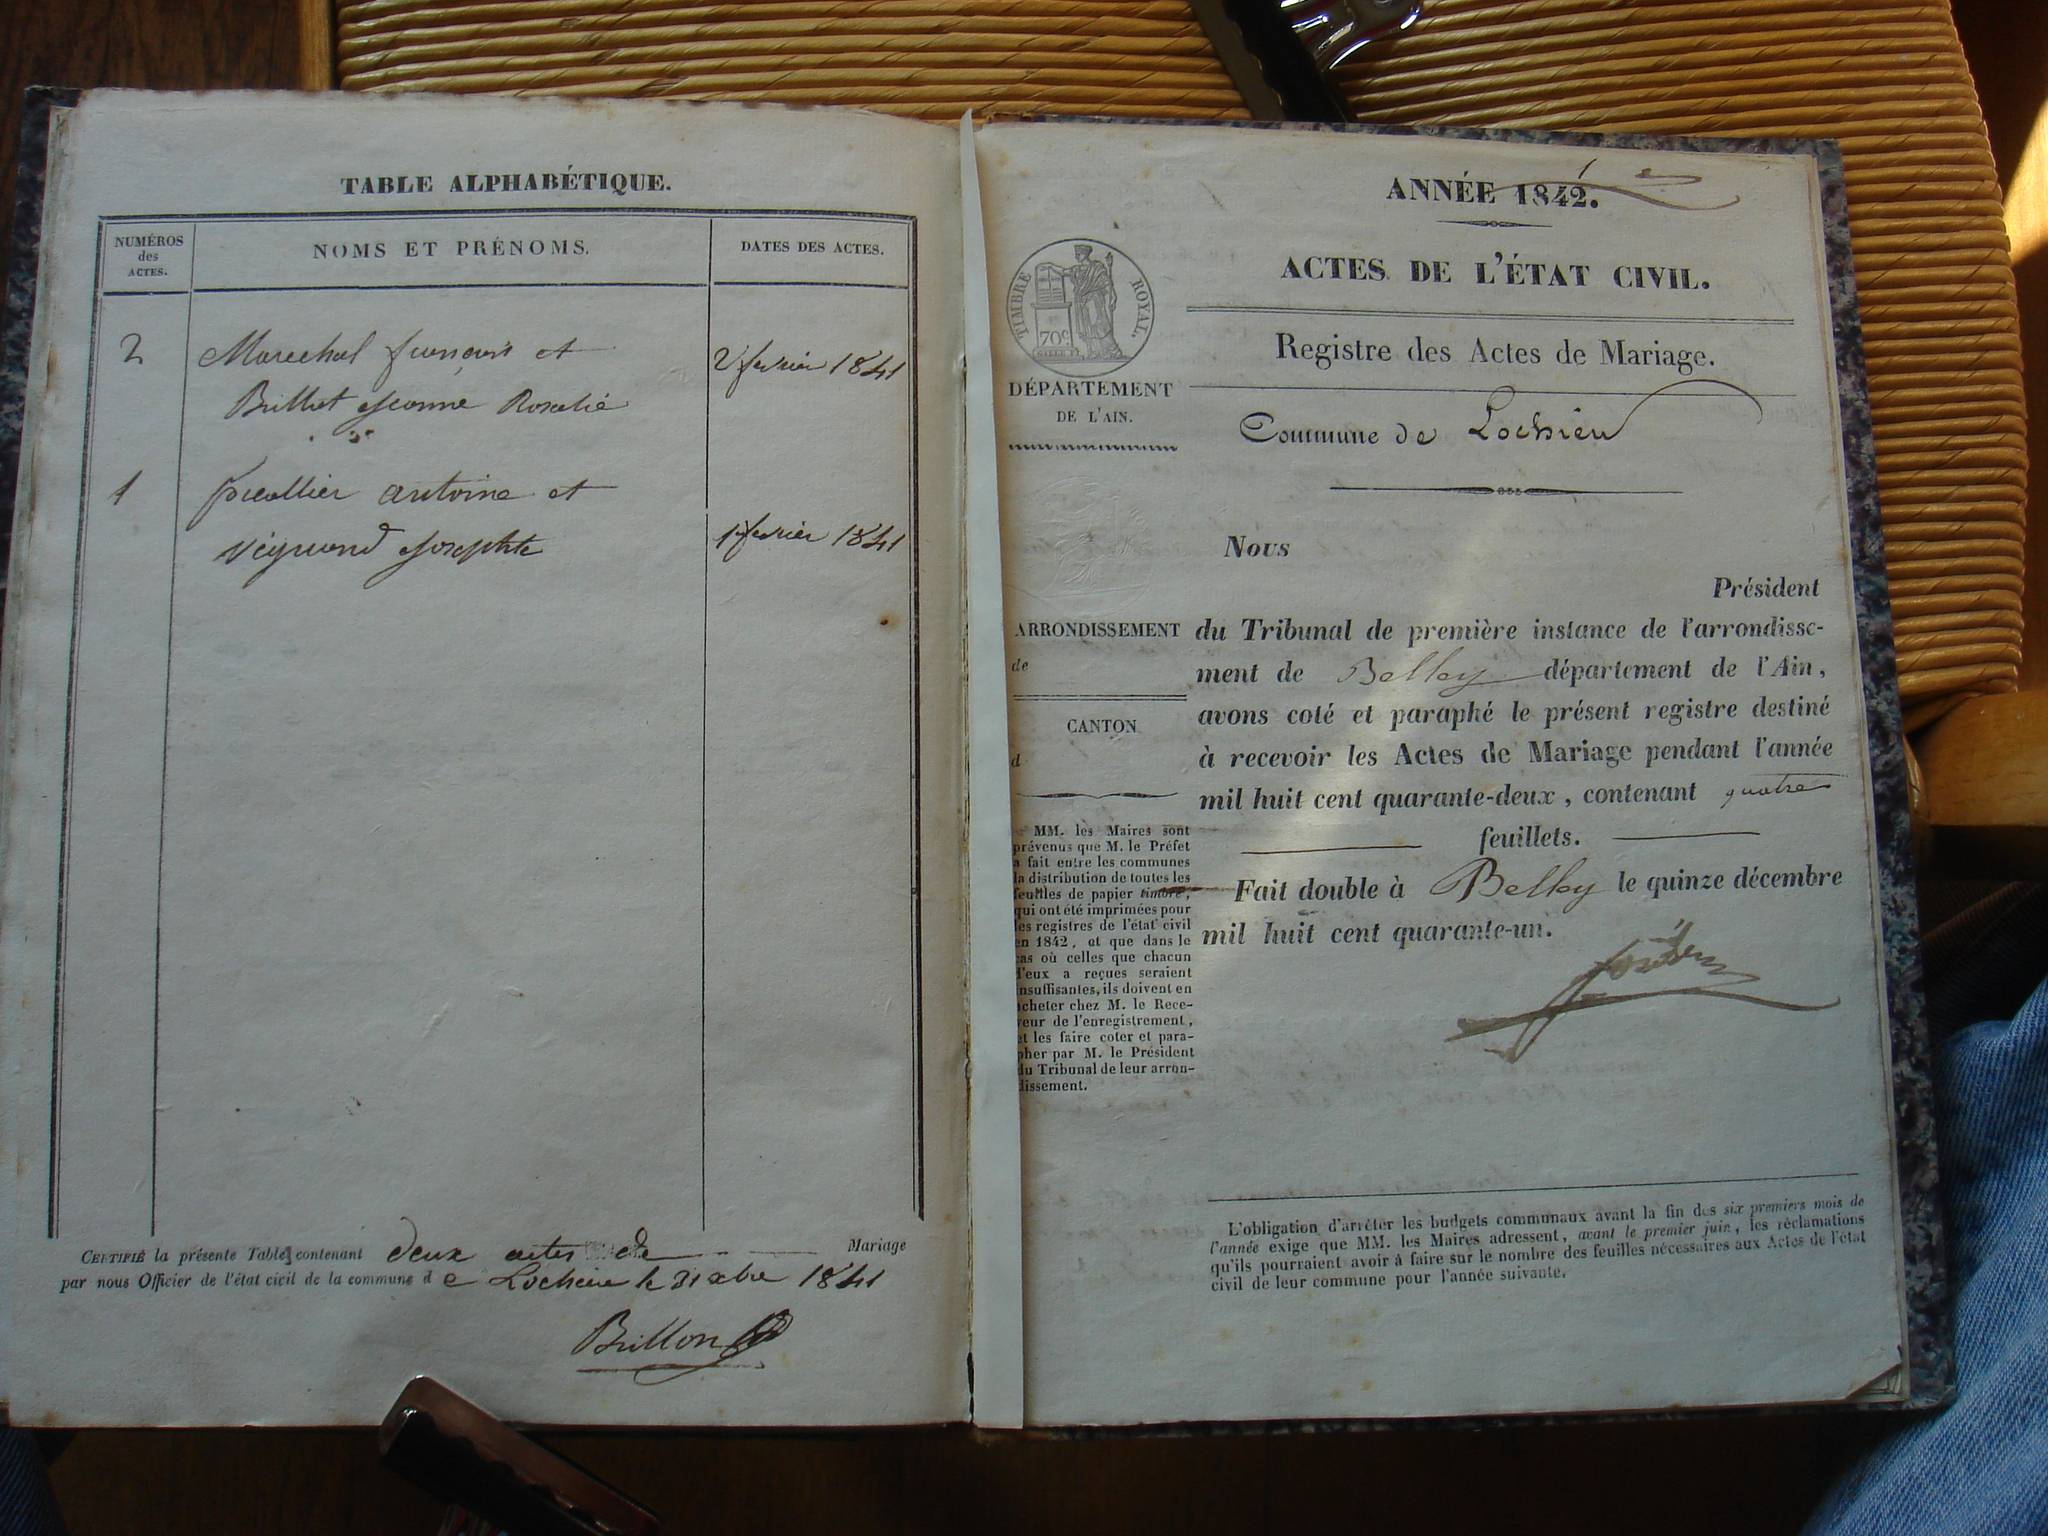 TABLE ALPHABÉTIQUE.
NUMÉROS
des
ACTES.
NOMS ET PRÉNOMS.
DATES DES ACTES.
2
Marechal françois et
2 février 1841
Brillet Jeanne Rosalie
1
antoine et
Josephte
1 février 1841
CERTIFIÉ la présente Table, contenant deux actes de Mariage
par nous Officier de l'état civil de la commune d e Lochieu le 31 xbre 1841
Brillon
ANNÉE 1842.
ACTES DE L'ÉTAT CIVIL.
TIMBRE ROYAL.
70c
Registre des Actes de Mariage.
DÉPARTEMENT
DE L'AIN.
Commune de Lochieu
Nous
Président
ARRONDISSEMENT
de
CANTON
d
du Tribunal de première instance de l'arrondisse-
ment de Belley département de l'Ain,
avons coté et paraphé le présent registre destiné
à recevoir les Actes de Mariage pendant l'année
mil huit cent quarante-deux, contenant quatre
feuillets.
Fait double à Belley le quinze décembre
mil huit cent quarante-un.
MM. les Maires sont
prévenus que M. le Préfet
a fait entre les communes
la distribution de toutes les
feuilles de papier timbré,
qui ont été imprimées pour
les registres de l'état civil
en 1842, et que dans le
cas où celles que chacun
d'eux a reçues seraient
insuffisantes, ils doivent en
acheter chez M. le Rece-
veur de l'enregistrement,
et les faire coter et para-
pher par M. le Président
du Tribunal de leur arron-
dissement.
L'obligation d'arrêter les budgets communaux avant la fin des six premiers mois de
l'année exige que MM. les Maires adressent, avant le premier juin, les réclamations
qu'ils pourraient avoir à faire sur le nombre des feuilles nécessaires aux Actes de l'état
civil de leur commune pour l'année suivante.